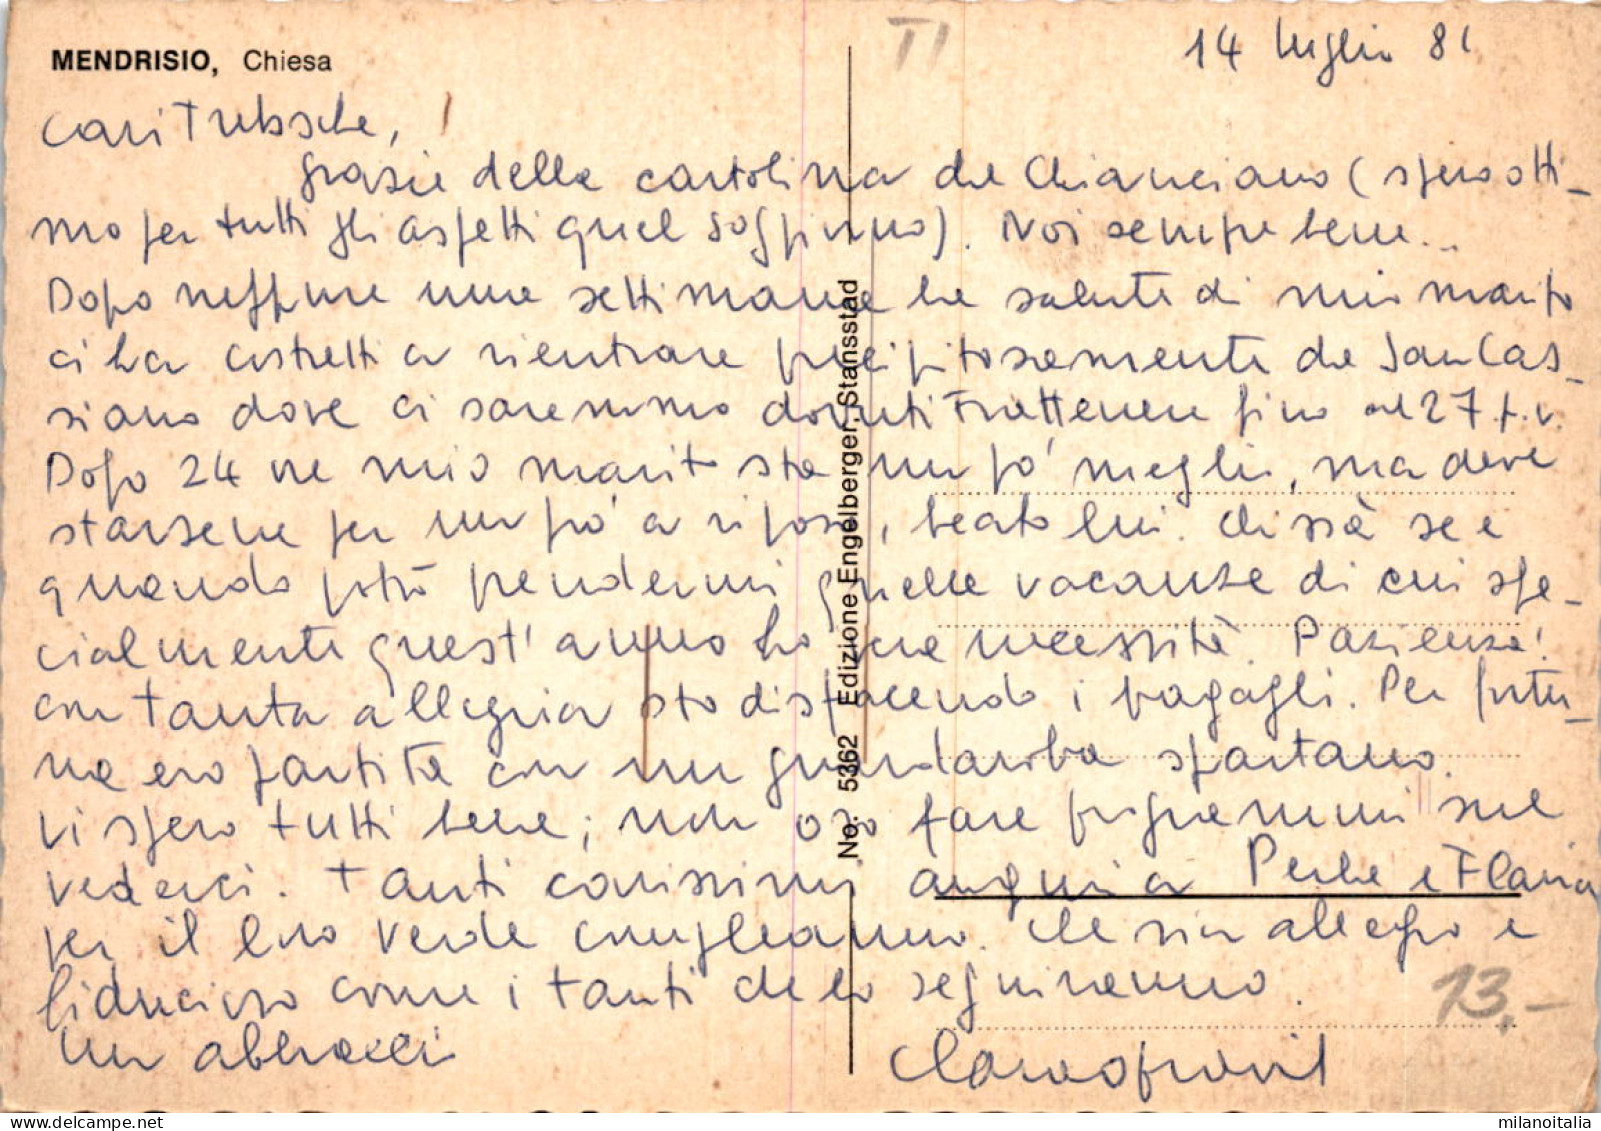 MENDRISIO, Chiesa
TI
14 luglio 81
Cari
grazie della cartolina da Chianciano (spero otti-
mo per tutti gli aspetti quel soggiorno). Noi sempre bene...
Dopo neppure una settimana la salute di mio marito
ci ha costretti a rientrare precipitosamente da San Cas-
siano dove ci saremmo dovuti trattenere fino al 27 p.v.
Dopo 24 ore mio marito sta un po' meglio, ma deve
starsene per un po' a riposo, beato lui. Chissà se e
quando potrò prendermi quelle vacanze di cui spe-
cialmente quest'anno ho una necessità. Pazienza!
Con tanta allegria sto disfacendo i bagagli. Per fortu-
na ero partita con un guardaroba spartano.
Vi spero tutti bene; non oso fare programmi sul
vederci. Tanti carissimi auguri a e Flavia
per il loro verde compleanno. Che sia allegro e
fiducioso come i tanti che lo seguiranno.
Un abbraccio
No. 5362 Edizione Engelberger, Stansstad
13.-
milanoitalia